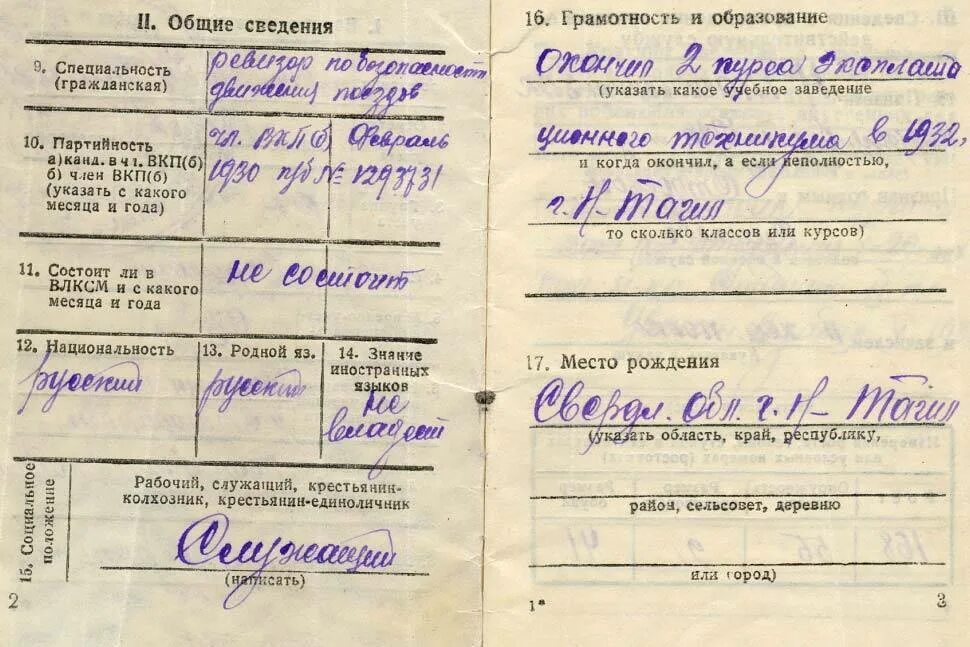 II. Общие сведения
9. Специальность
(гражданская)
ревизор по безопасности
движения поездов
10. Партийность
а) канд. в чл. ВКП(б)
б) член ВКП(б)
(указать с какого
месяца и года)
чл. ВКП(б) Февраль
1930 п/б № 1293731
11. Состоит ли в
ВЛКСМ и с какого
месяца и года
не состоит
12. Национальность
русский
13. Родной яз.
русский
14. Знание
иностранных
языков
не
владеет
15. Социальное
положение
Рабочий, служащий, крестьянин-
колхозник, крестьянин-единоличник
Служащий
(написать)
2
16. Грамотность и образование
Окончил 2 курса Эксплата
(указать какое учебное заведение
ционного техникума в 1932,
и когда окончил, а если неполностью,
г. Н-Тагил
то сколько классов или курсов)
17. Место рождения
Свердл. обл. г. Н-Тагил
(указать область, край, республику,
район, сельсовет, деревню
или город)
1*
3